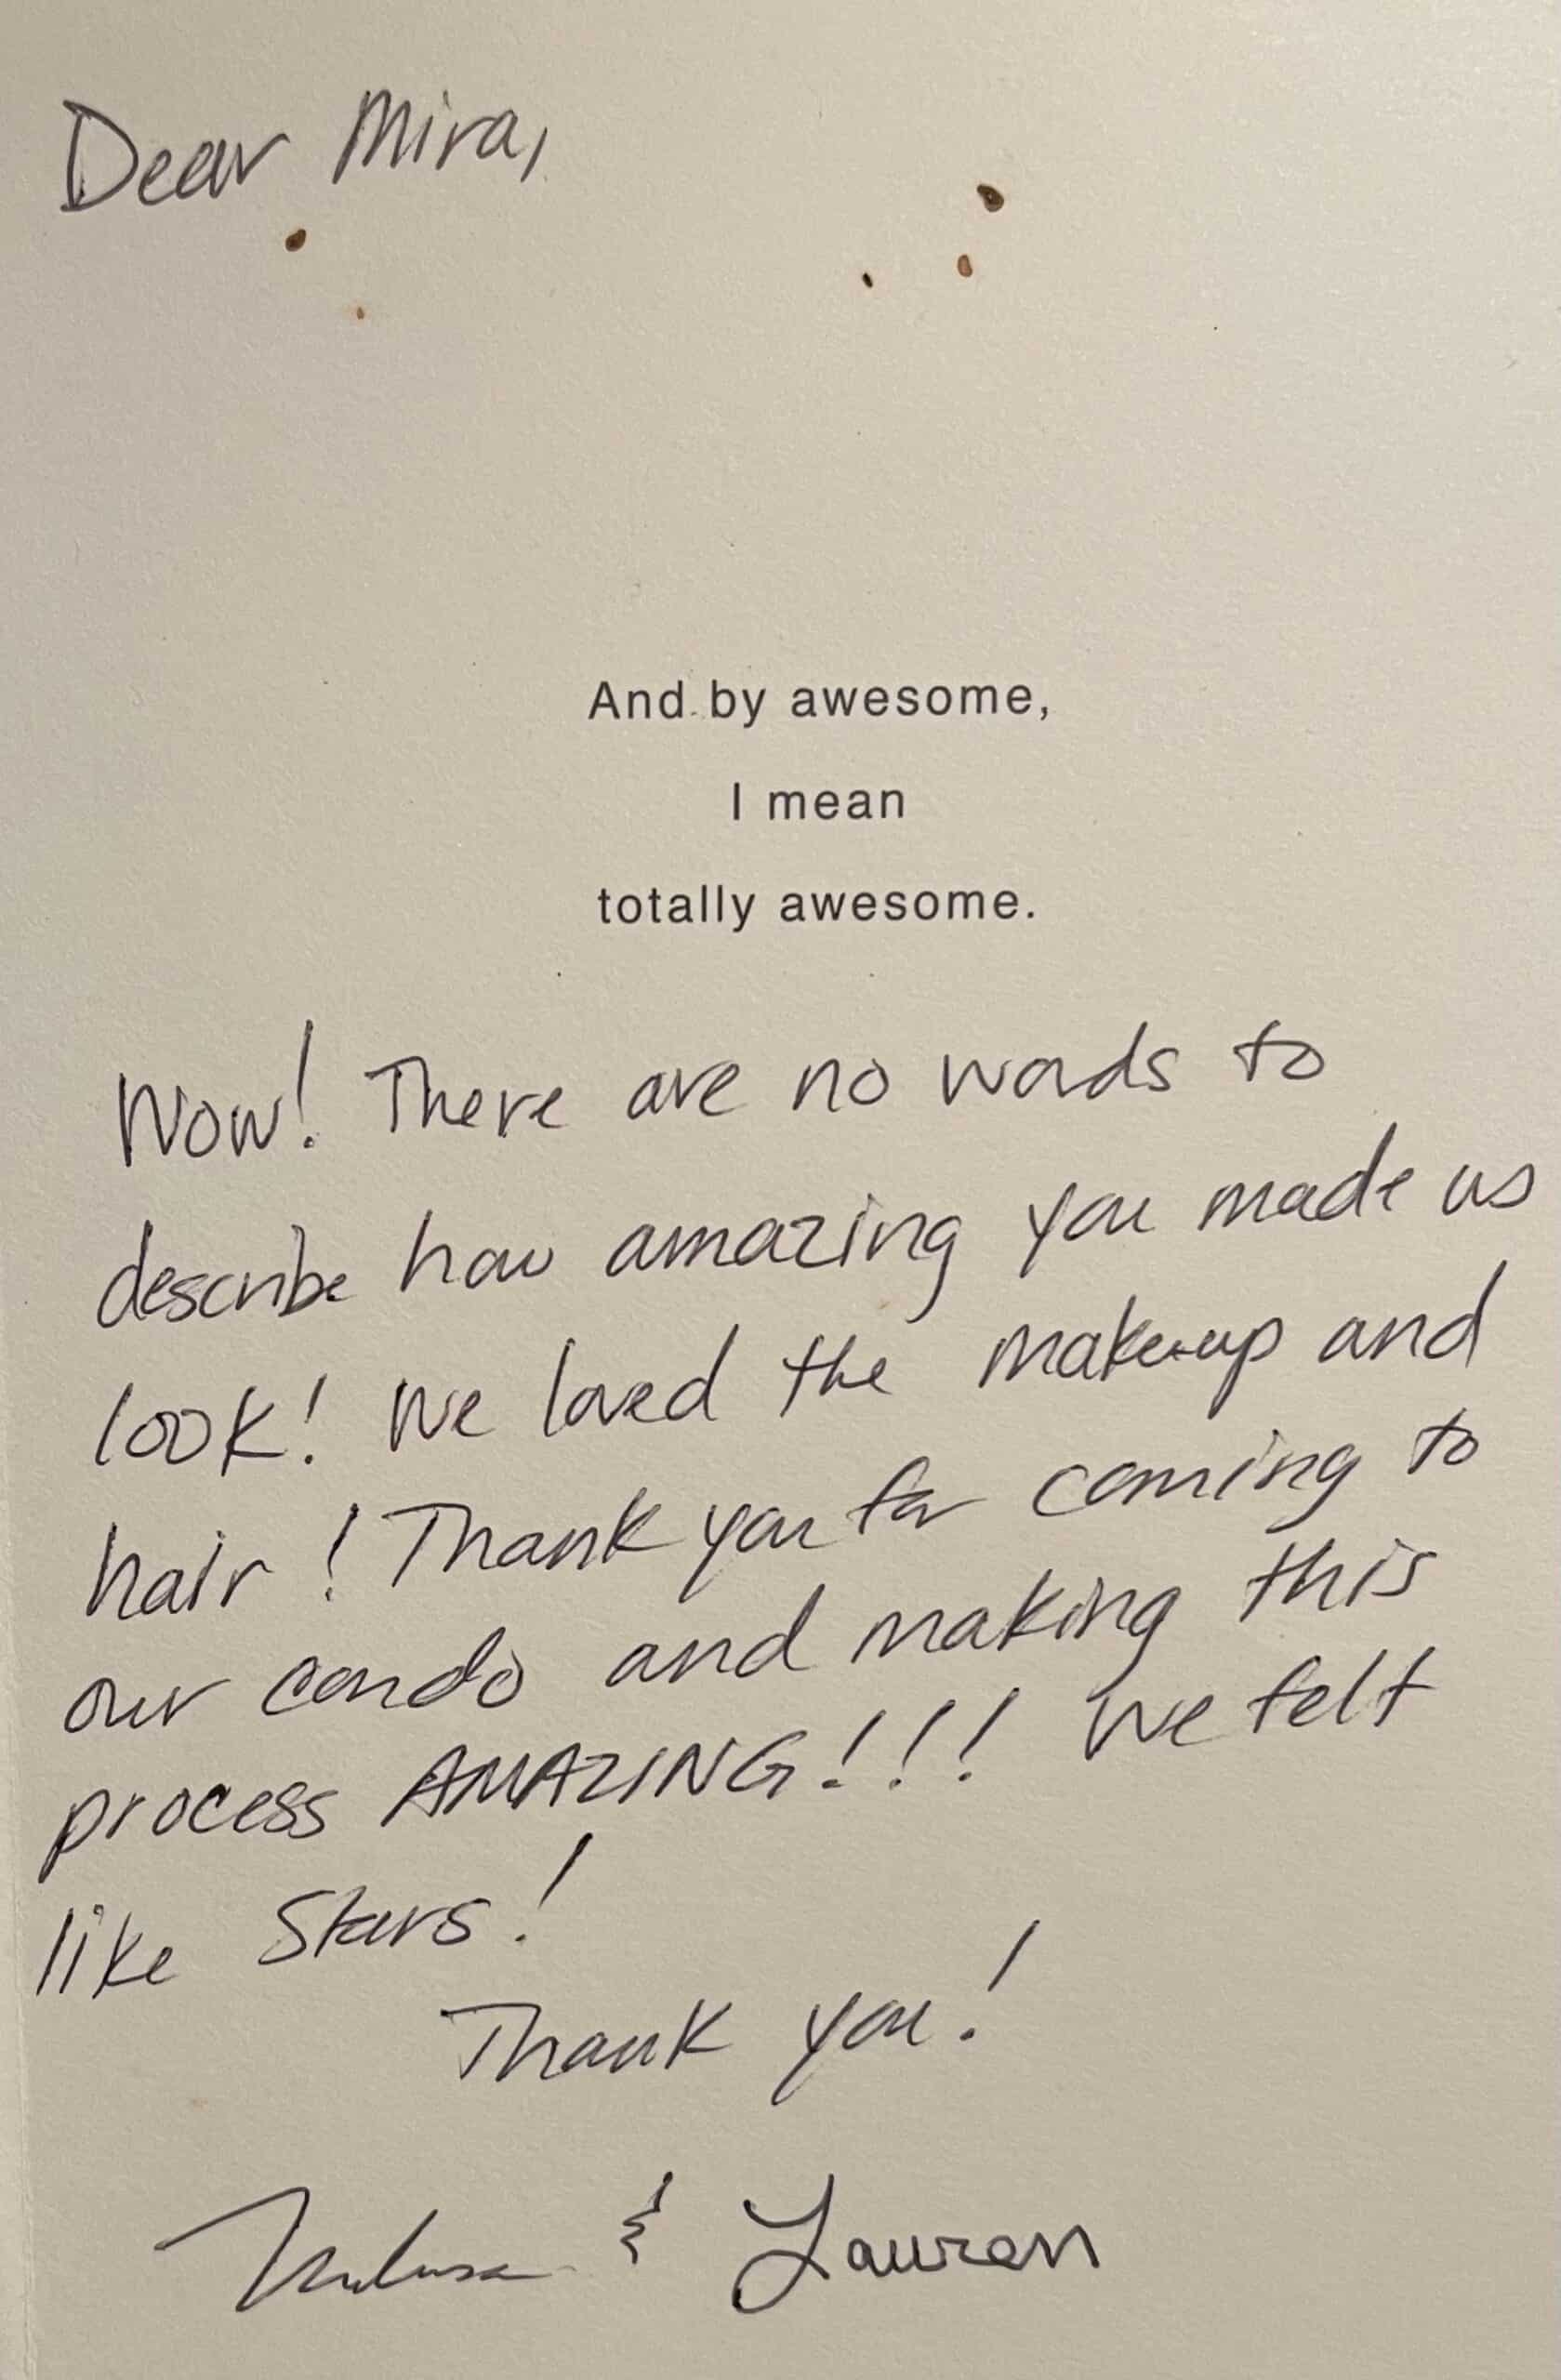 Dear Mira,
And by awesome,
I mean
totally awesome.
Wow! There are no words to
describe how amazing you made us
look! We loved the makeup and
hair! Thank you for coming to
our condo and making this
process AMAZING!!! We felt
like Stars!
Thank you!
& Lauren